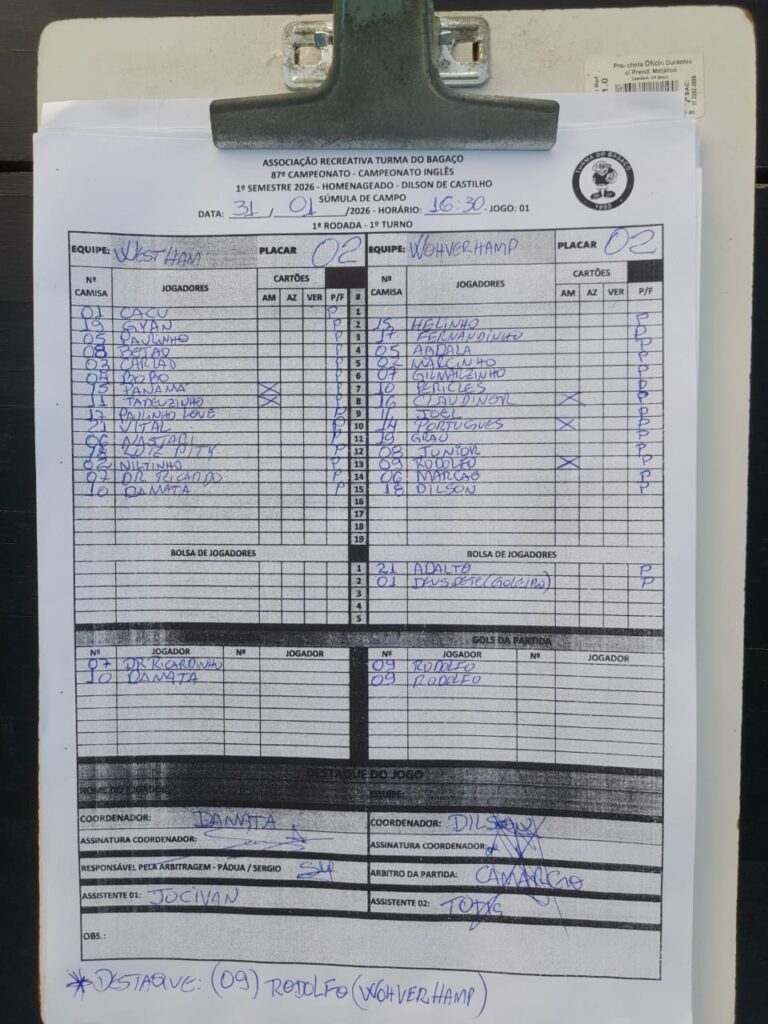 Prancheta Oficio Duratec
c/ Prend. Metálico
ASSOCIAÇÃO RECREATIVA TURMA DO BAGAÇO
87º CAMPEONATO - CAMPEONATO INGLÊS
1º SEMESTRE 2026 - HOMENAGEADO - DILSON DE CASTILHO
SÚMULA DE CAMPO
DATA: 31 / 01 /2026 - HORÁRIO: 16:30 - JOGO: 01
1ª RODADA - 1º TURNO
TURMA DO BAGAÇO
EQUIPE: WESTHAM PLACAR 02 EQUIPE: WOHVERHAMP PLACAR 02
Nº CAMISA JOGADORES CARTÕES Nº CAMISA JOGADORES CARTÕES
AM AZ VER P/F # AM AZ VER P/F
01 CACU P 1
19 GYAN P 2 15 HELINHO P
05 PAULINHO P 3 17 FERNANDINHO P
08 BETAO P 4 05 ABDALA P
03 CARLAO P 5 02 MARCINHO P
04 BOBO P 6 07 GILMARZINHO P
15 PANAMA X P 7 10 PERICLES P
11 TADEUZINHO X P 8 16 CLAUDINOR X P
17 PAULINHO LOVE P 9 11 JOEL P
21 VITAL P 10 14 PORTUGUES X P
06 NASTARI P 11 19 GRAU P
18 LUIZ PITY P 12 08 JUNIOR P
02 NILTINHO P 13 09 RODOLFO X P
07 DR RICARDO P 14 06 MARCAO P
10 DAMATA P 15 18 DILSON P
16
17
18
19
BOLSA DE JOGADORES BOLSA DE JOGADORES
1 21 ADALTO P
2 01 DEUSDETE (GOLEIRO) P
3
4
5
GOLS DA PARTIDA GOLS DA PARTIDA
Nº JOGADOR Nº JOGADOR Nº JOGADOR Nº JOGADOR
07 DR RICARDINHO 09 RODOLFO
10 DAMATA 09 RODOLFO
DESTAQUE DO JOGO
NOME DO JOGADOR: EQUIPE:
COORDENADOR: DAMATA COORDENADOR: DILSON
ASSINATURA COORDENADOR: ASSINATURA COORDENADOR:
RESPONSÁVEL PELA ARBITRAGEM - PÁDUA / SERGIO ARBITRO DA PARTIDA: CAMARGO
ASSISTENTE 01: JOCIVAN ASSISTENTE 02:
OBS.:
* DESTAQUE: (09) RODOLFO (WOHVERHAMP)